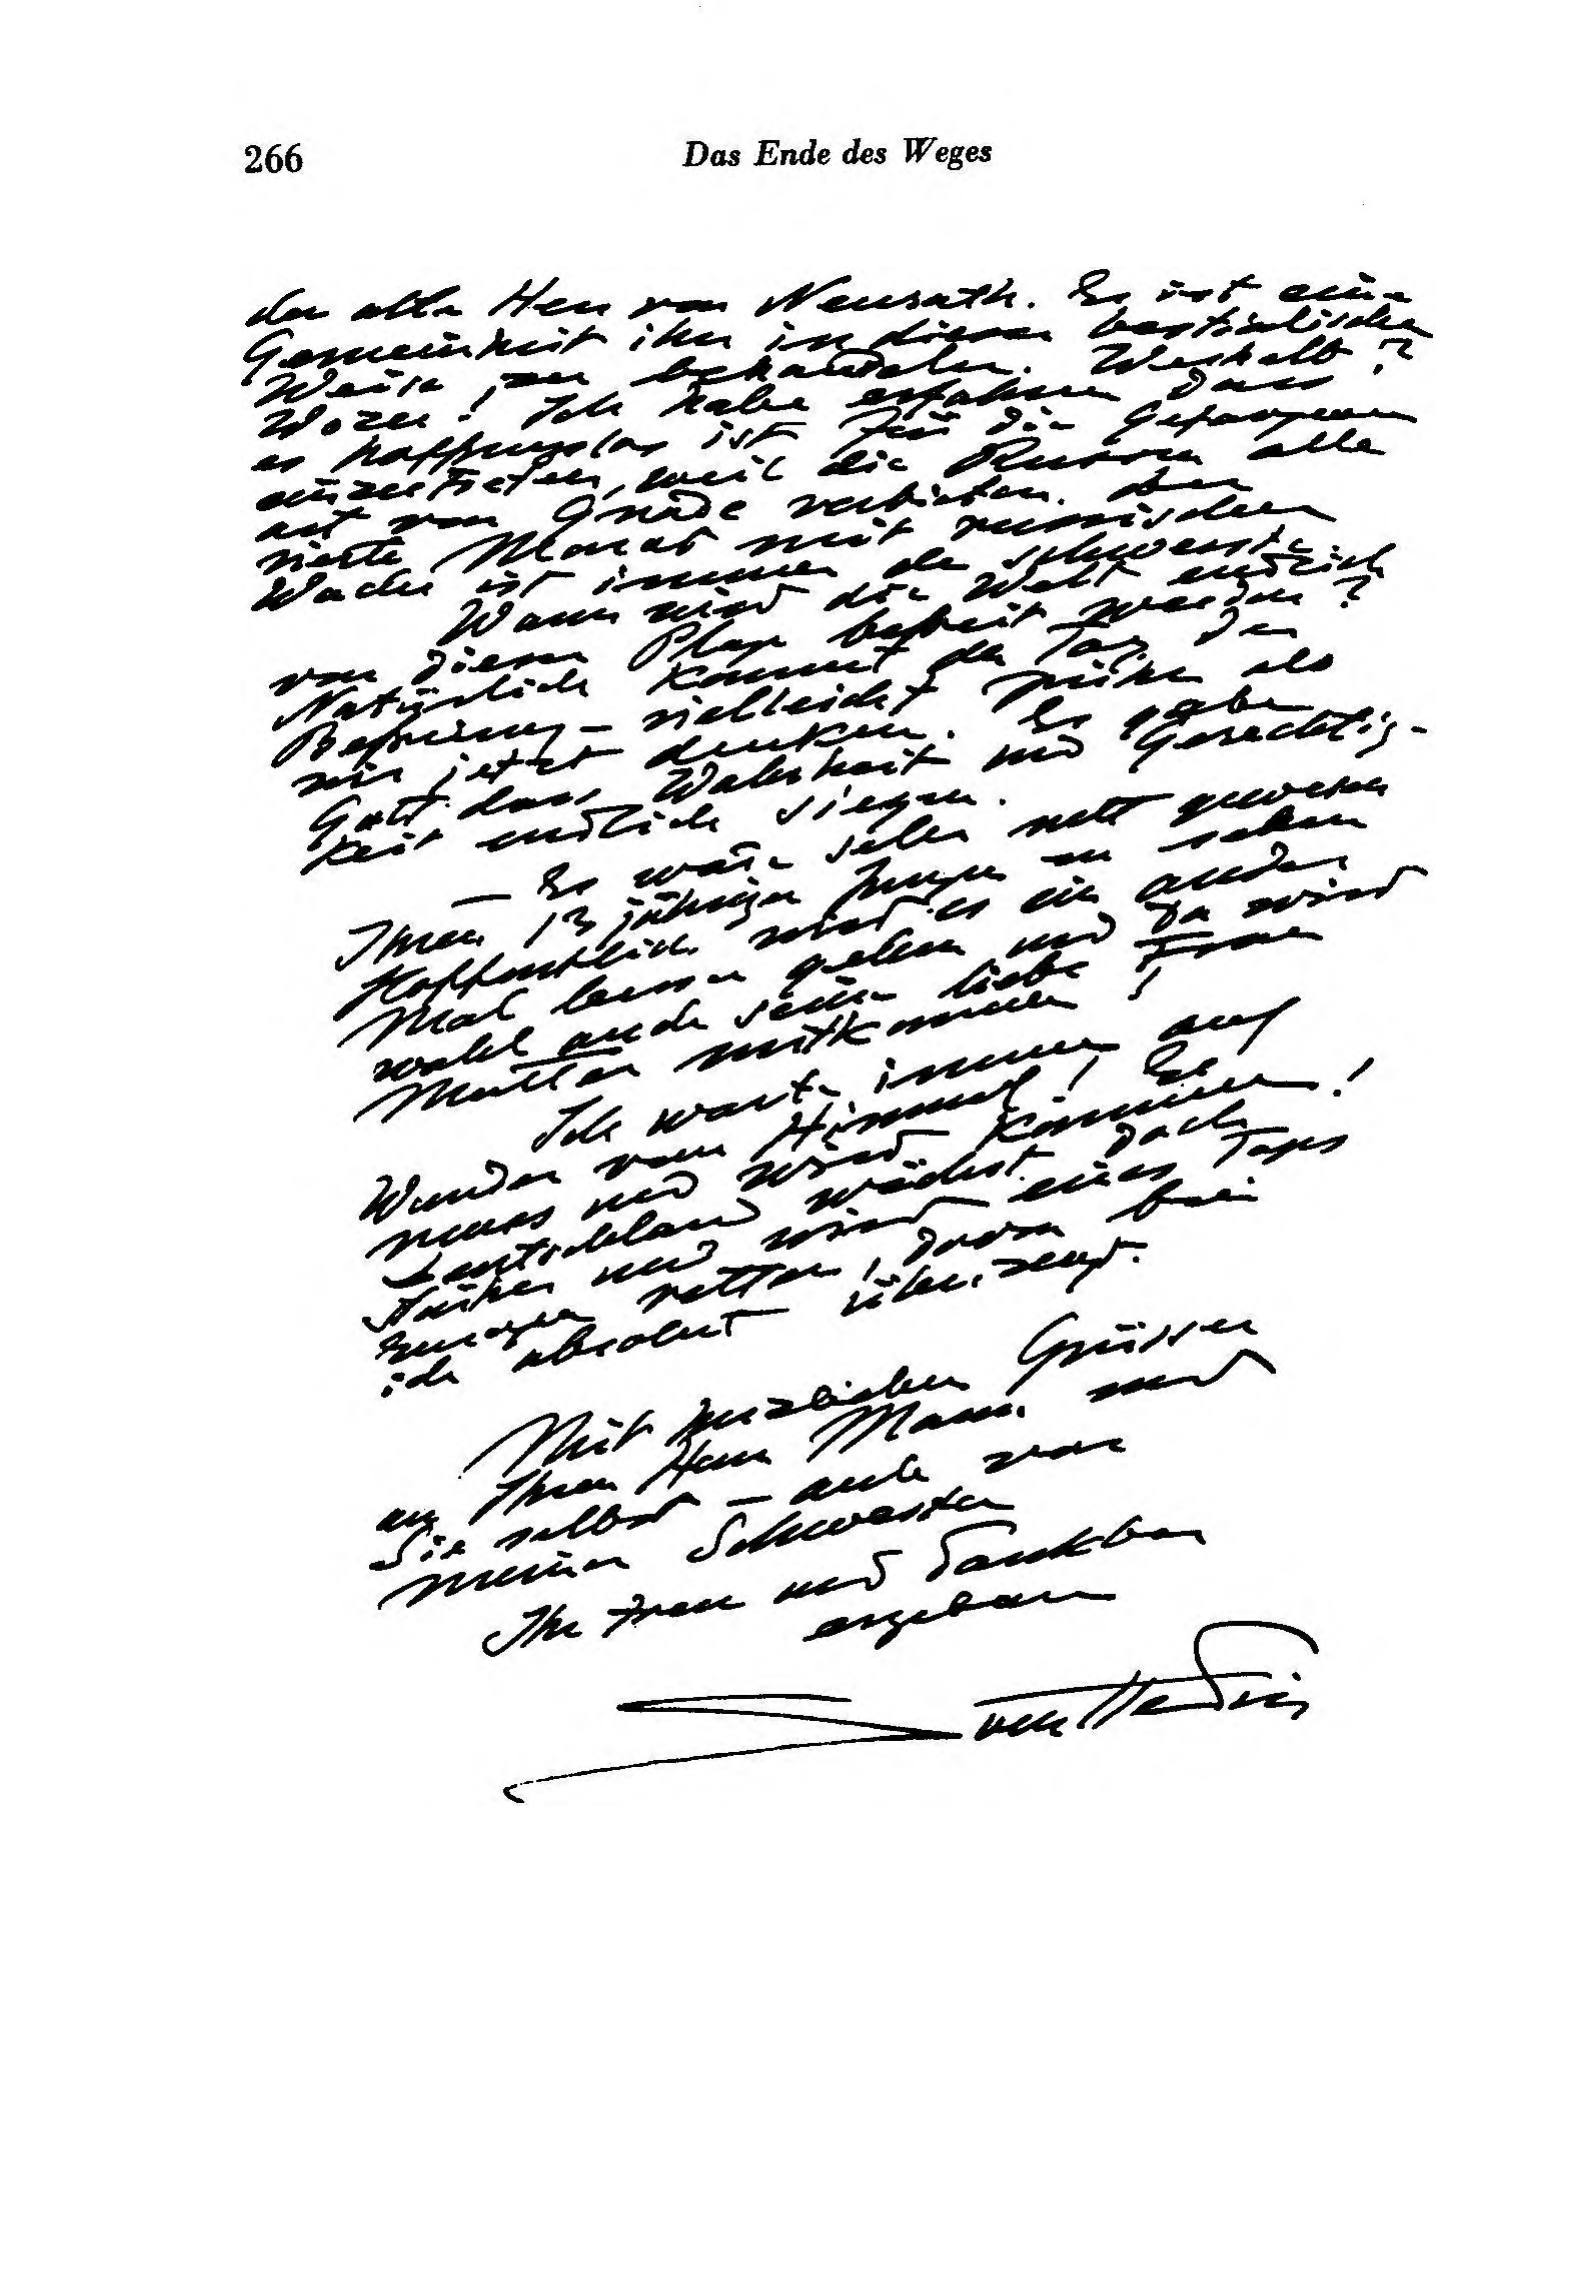 266
Das Ende des Weges
der alte Herr von Neurath. Es ist eine
Gemeinheit ihn in dieser bestialischen
Weise zu behandeln. Weshalb?
Wozu! Ich habe erfahren dass
es hoffnungslos ist für die Gefangenen
einzutreten, weil die Russen alle
art von Gnade verbieten. Der
vierte Monat mit russischen
Wache ist immer der schwerste.
Wann wird die Welt endlich
von dieser Plage befreit werden?
Natürlich kommt der Tag der
Befreiung – vielleicht früher als
wir jetzt denken. Es gebe
Gott dass Wahrheit und Gerechtig-
keit endlich siegen.
– Es wäre sehr nett gewesen
Ihren 13 jährigen Jungen zu sehen
Hoffentlich wird es ein ander
Mal besser gehen und da wird
wohl auch seine liebe Frau
Mutter mitkommen!
Ich warte immer auf
Wunder vom Himmel! Es
muss und wird kommen!
Deutschland wächst doch
stärker und wird eines Tages
Europa retten, davon bin
ich absolut überzeugt.
Mit herzlichen Grüssen
an Ihren Herrn Mann und
Sie selbst – auch von
meiner Schwester
Ihr treu und dankbar
ergebener
Sven Hedin